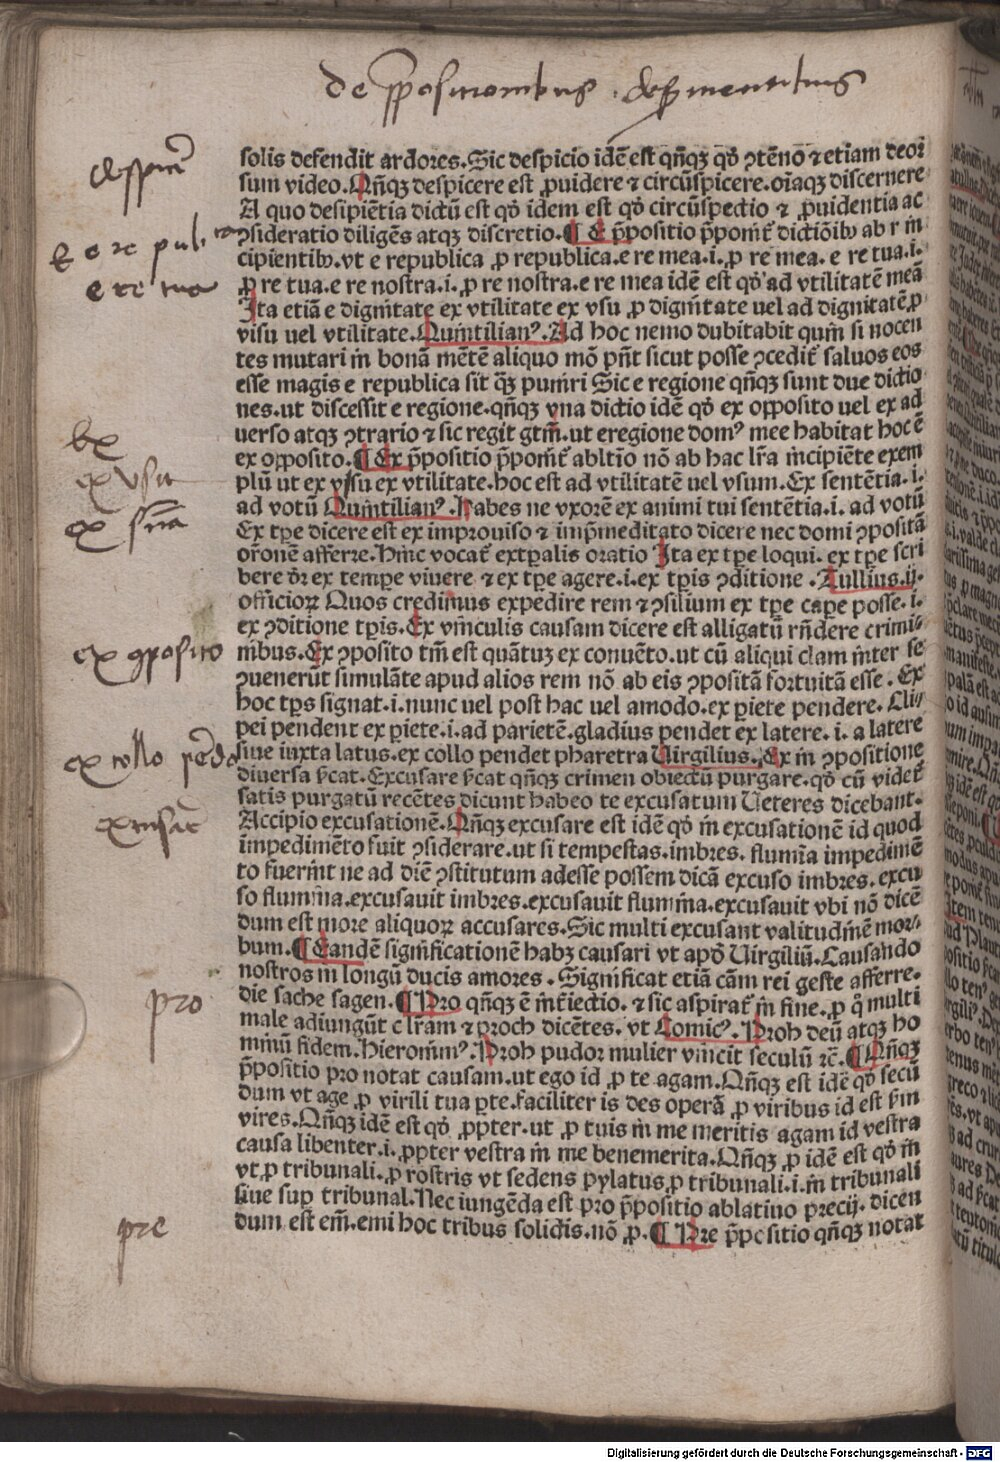 de ꝓpositionibus
solis defendit ardores. Sic despicio idē est qñqꝫ qď ꝯtēno ⁊ etiam deor
sum video. Qñqꝫ despicere est ꝓuidere ⁊ circūspicere. oīaqꝫ discernere
A quo desipiētia dictū est qď idem est qď circūspectio ⁊ ꝓuidentia ac
ꝯsideratio diligēs atqꝫ discretio. ¶ E p̄positio p̄ponit᷑ dictiōibꝰ ab r in
cipientibꝰ. vt e republica ꝓ republica. e re mea .i. ꝓ re mea. e re tua .i.
ꝓ re tua. e re nostra .i. ꝓ re nostra. e re mea idē est qď ad vtilitatē meā
Ita etiā e dignitate ex vtilitate ex vsu ꝓ dignitate uel ad dignitatē ꝓ
visu uel vtilitate. Quintilianꝰ. Ad hoc nemo dubitabit quin si nocen
tes mutari in bonā mētē aliquo mō pn̄t sicut posse ꝯcedit᷑ saluos eos
esse magis e republica sit qꝫ̄ puniri Sic e regione qñqꝫ sunt due dictio
nes. ut discessit e regione. qñqꝫ vna dictio idē qď ex opposito uel ex ad
uerso atqꝫ ꝯtrario ⁊ sic regit gtm̄. ut eregione domꝰ mee habitat hoc ē
ex opposito. ¶ Ex p̄positio p̄ponit᷑ abltīo nō ab hac lr̄a incipiēte exem
plū ut ex vsu ex vtilitate. hoc est ad vtilitatē uel vsum. Ex sentētia .i.
ad votū Quintilianꝰ. Habes ne vxorē ex animi tui sentētia .i. ad votū
Ex tꝑe dicere est ex improuiso ⁊ inp̄meditato dicere nec domi ꝯpositā
or̄onē afferre. Hinc vocat᷑ extꝑalis oratio Ita ex tꝑe loqui. ex tꝑe scri
bere dr̄ ex tempe viuere ⁊ ex tꝑe agere .i. ex tꝑis ꝯditione . Tullius .ij.
officioꝝ Quos credimus expedire rem ⁊ ꝯsilium ex tꝑe capere posse .i.
ex ꝯditione tꝑis. Ex vinculis causam dicere est alligatū rn̄dere crimi⸗
nibus. Ex ꝯposito tm̄ est quātuꝫ ex conuēto. ut cū aliqui clam inter se
ꝯuenerūt simulāte apud alios rem nō ab eis ꝯpositā fortuitā esse . Ex
hoc tꝑs signat .i. nunc uel post hac uel amodo. ex ꝑiete pendere. Cli⸗
pei pendent ex ꝑiete .i. ad parietē. gladius pendet ex latere .i. a latere
siue iuxta latus. ex collo pendet pharetra Uirgilius. Ex in ꝯpositione
diuersa s̄cat. Excusare s̄cat qñqꝫ crimen obiectū purgare. qď cū videt᷑
satis purgatū recētes dicunt habeo te excusatum Ueteres dicebant.
Accipio excusationē. Qñqꝫ excusare est idē qď in excusationē id quod
impedimēto fuit ꝯsiderare. ut si tempestas. imbres. flumīa impedimē
to fuerint ne ad diē ꝯstitutum adesse possem dicā excuso imbres. excu
so flumina. excusauit imbres. excusauit flumina. excusauit vbi nō dicē
dum est more aliquoꝝ accusares. Sic multi excusant valitudinē mor⸗
bum. ¶ Eandē significationē habꝫ causari vt apď Uirgiliū. Causando
nostros in longū ducis amores . Significat etiā cām rei geste afferre.
die sache sagen. ¶ Pro qñqꝫ ē int̄iectio. ⁊ sic aspirat᷑ in fine. ꝓ q̄ multi
male adiungūt c lr̄am ⁊ proch dicētes. vt Comicꝰ. Proh deū atqꝫ ho
minū fidem. Hieronimꝰ. Proh pudor mulier vincit seculū ⁊c̄. ¶ Qñqꝫ
p̄positio pro notat causam. ut ego id ꝓ te agam. Qñqꝫ est idē qď secū
dum vt age ꝓ virili tua ꝑte. faciliter is des operā ꝓ viribus id est s̄m
vires. Qñqꝫ idē est qď ꝓpter. ut ꝓ tuis in me meritis agam id vestra
causa libenter .i. ꝓpter vestra in me benemerita. Qñqꝫ ꝓ idē est qď in
vt ꝓ tribunali. ꝓ rostris vt sedens pylatus ꝓ tribunali .i. in tribunali
siue suꝑ tribunal. Nec iungēda est pro p̄positio ablatiuo precij. dicen
dum est em̄. emi hoc tribus solidis. nō ꝓ. ¶ Pre p̄positio qñqꝫ notat
e re publica
e re tua
ex
ex vsu
ex ꝯposito
ex collo
pro
pre
Digitalisierung gefördert durch die Deutsche Forschungsgemeinschaft - DFG